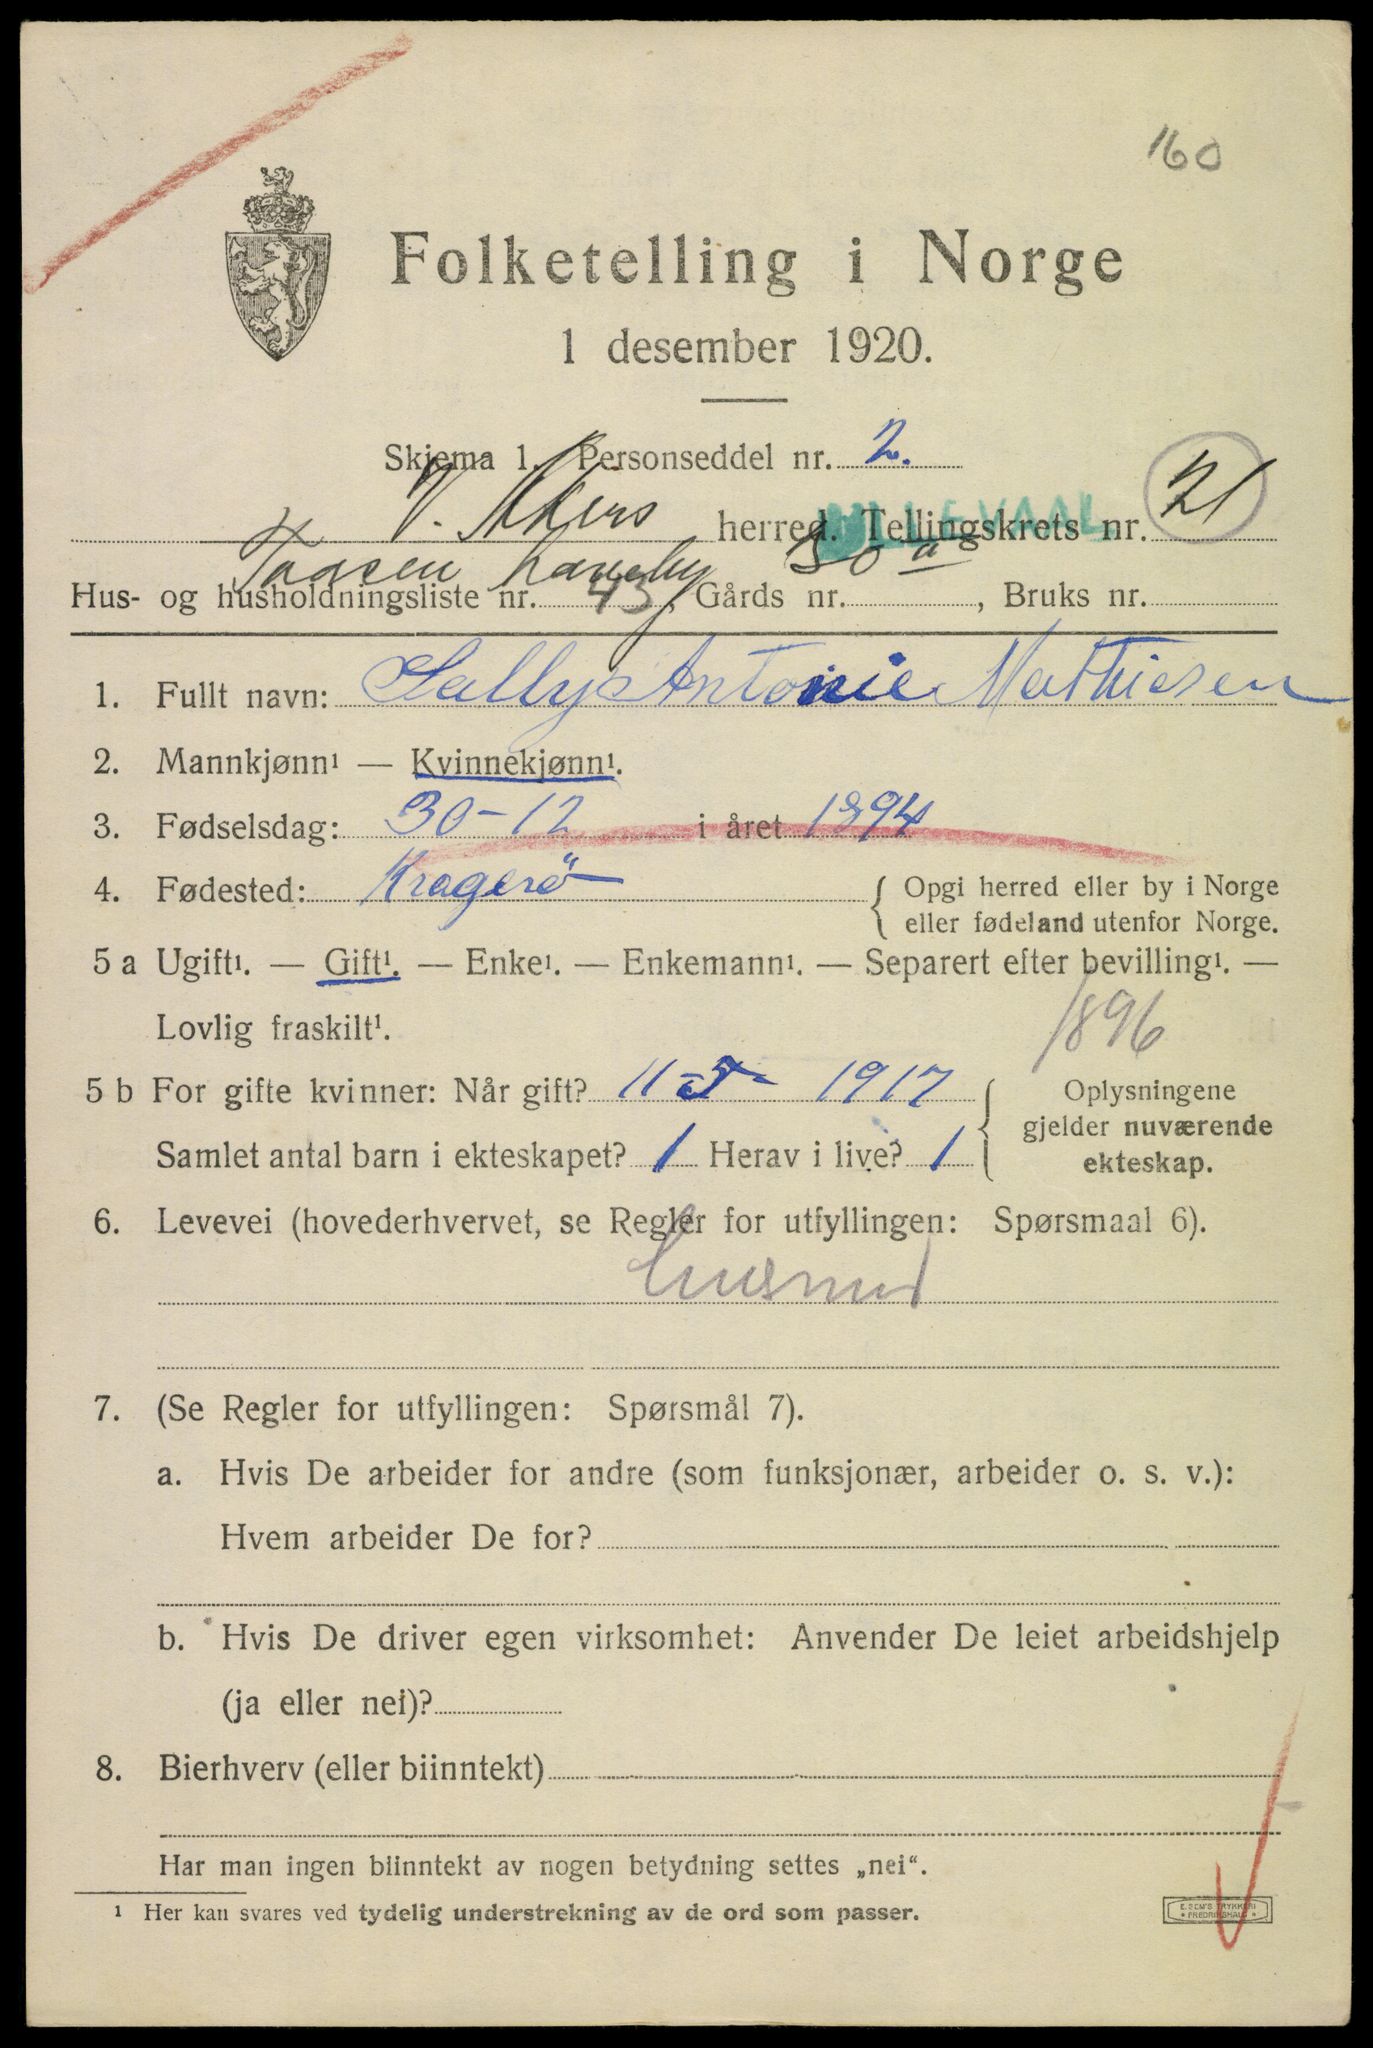 160
Folketelling i Norge
1 desember 1920.
Skjema 1. Personseddel nr. 2.
V. Akers herred. Tellingskrets nr. 21
ULLEVAAL
Taasen haveby 30 a
Hus- og husholdningsliste nr. 43, Gårds nr. , Bruks nr.
1. Fullt navn: Sally Antonie Mathiesen
2. Mannkjønn¹ — Kvinnekjønn¹.
3. Fødselsdag: 30-12 i året 1894
4. Fødested: Kragerø { Opgi herred eller by i Norge
eller fødeland utenfor Norge.
5 a Ugift¹. — Gift¹. — Enke¹. — Enkemann¹. — Separert efter bevilling¹. —
Lovlig fraskilt¹.
1896
5 b For gifte kvinner: Når gift? 11 1917 { Oplysningene
gjelder nuværende
Samlet antal barn i ekteskapet? 1 Herav i live? 1 ekteskap.
6. Levevei (hovederhvervet, se Regler for utfyllingen: Spørsmaal 6).
husmor
7. (Se Regler for utfyllingen: Spørsmål 7).
a. Hvis De arbeider for andre (som funksjonær, arbeider o. s. v.):
Hvem arbeider De for?
b. Hvis De driver egen virksomhet: Anvender De leiet arbeidshjelp
(ja eller nei)?
8. Bierhverv (eller biinntekt)
Har man ingen biinntekt av nogen betydning settes „nei“.
¹ Her kan svares ved tydelig understrekning av de ord som passer.
E. SEM'S TRYKKERI
* FREDRIKSHALD *